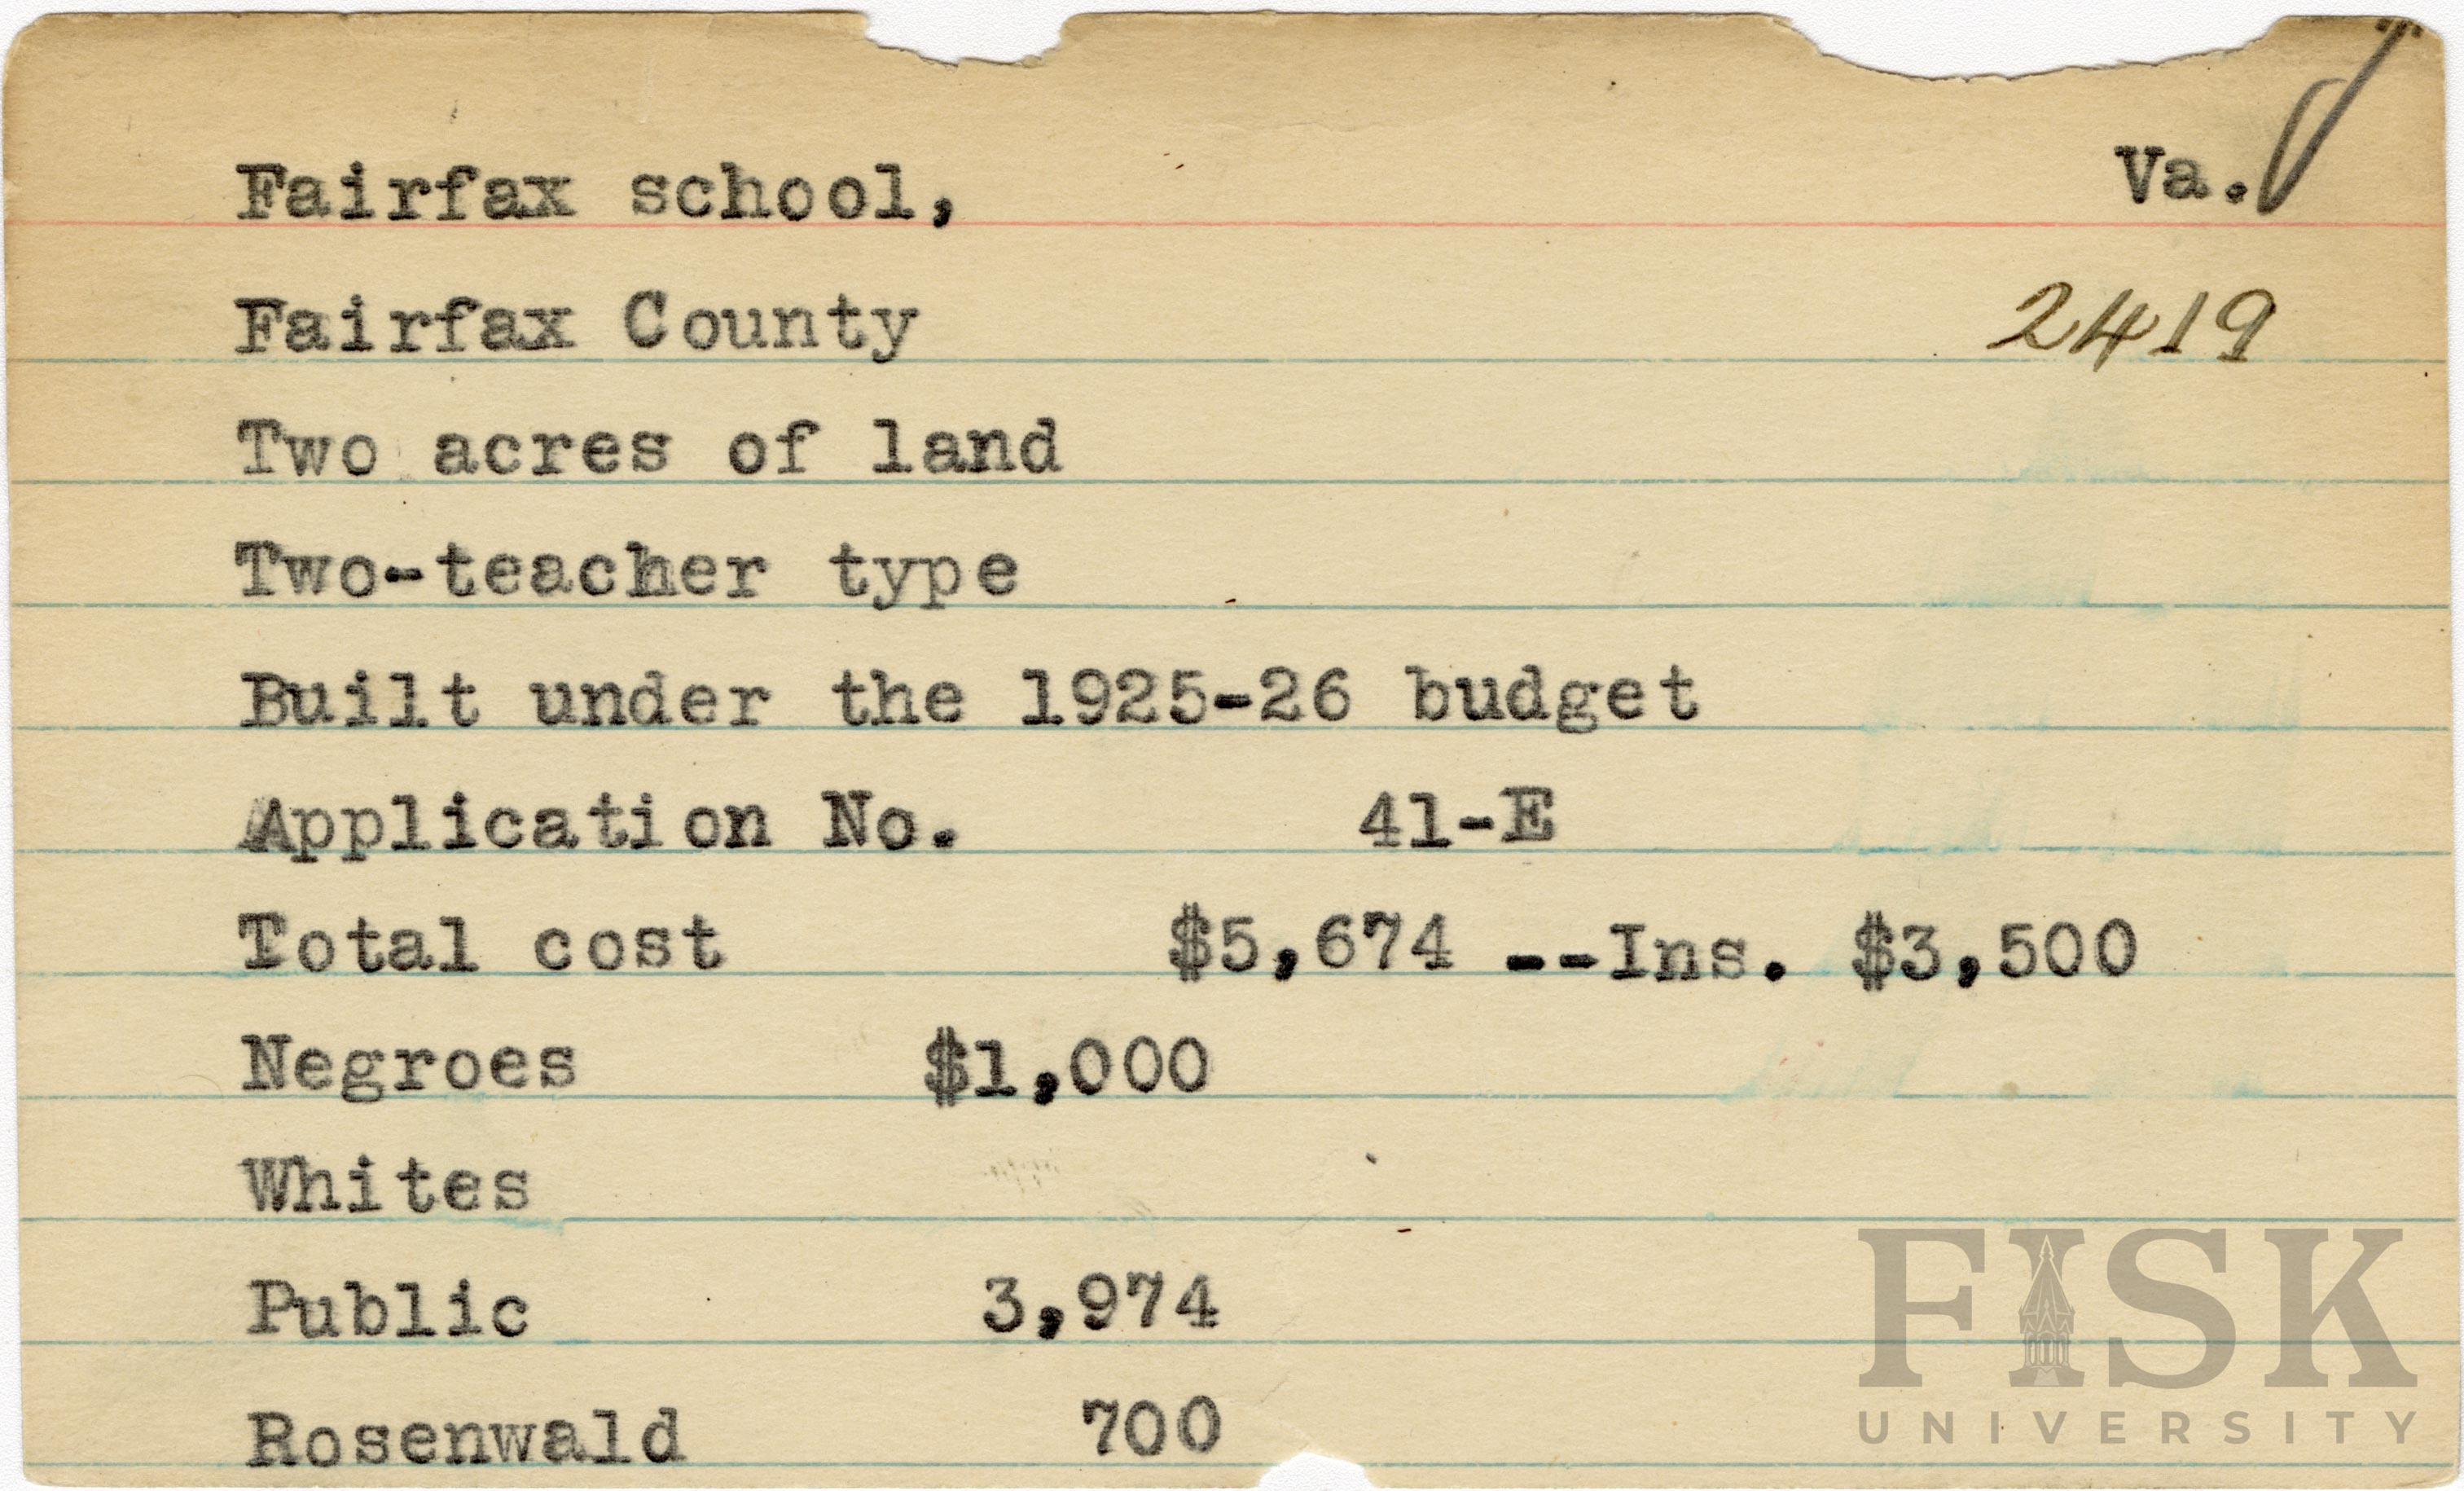 Fairfax school, Va.
Fairfax County 2419
Two acres of land
Two-teacher type
Built under the 1925-26 budget
Application No. 41-E
Total cost $5,674 --Ins. $3,500
Negroes $1,000
Whites
Public 3,974
Rosenwald 700
FISK
UNIVERSITY